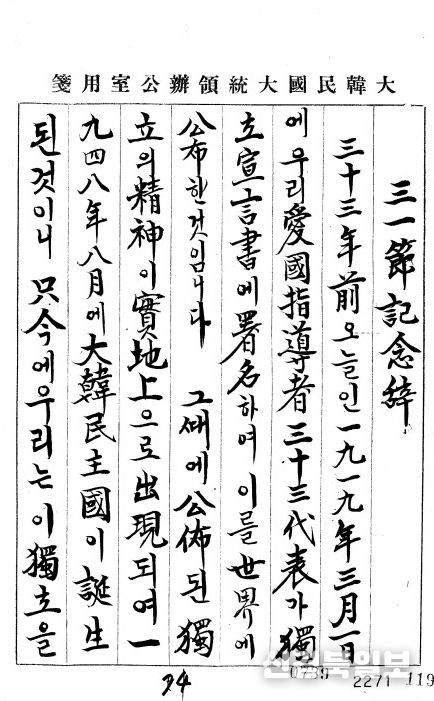 大韓民國大統領辦公室用箋
三一節記念辭
三十三年前오늘인一九一九年三月一日
에우리愛國指導者三十三代表가獨
立宣言書에署名하여이를世界에
公布한것임니다 그때에公佈된獨
立의精神이實地上으로出現되여一
九四八年八月에大韓民主國이誕生
된것이니 只今에우리는이獨立을
94
2271 119